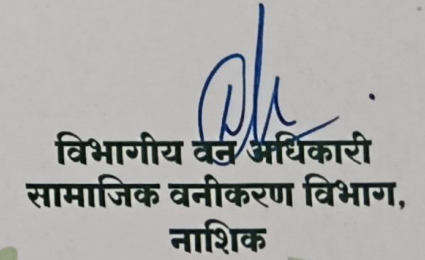 विभागीय वन अधिकारी
सामाजिक वनीकरण विभाग,
नाशिक